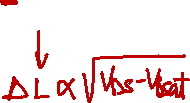 ΔL ∝ √(V_DS - V_Dsat)